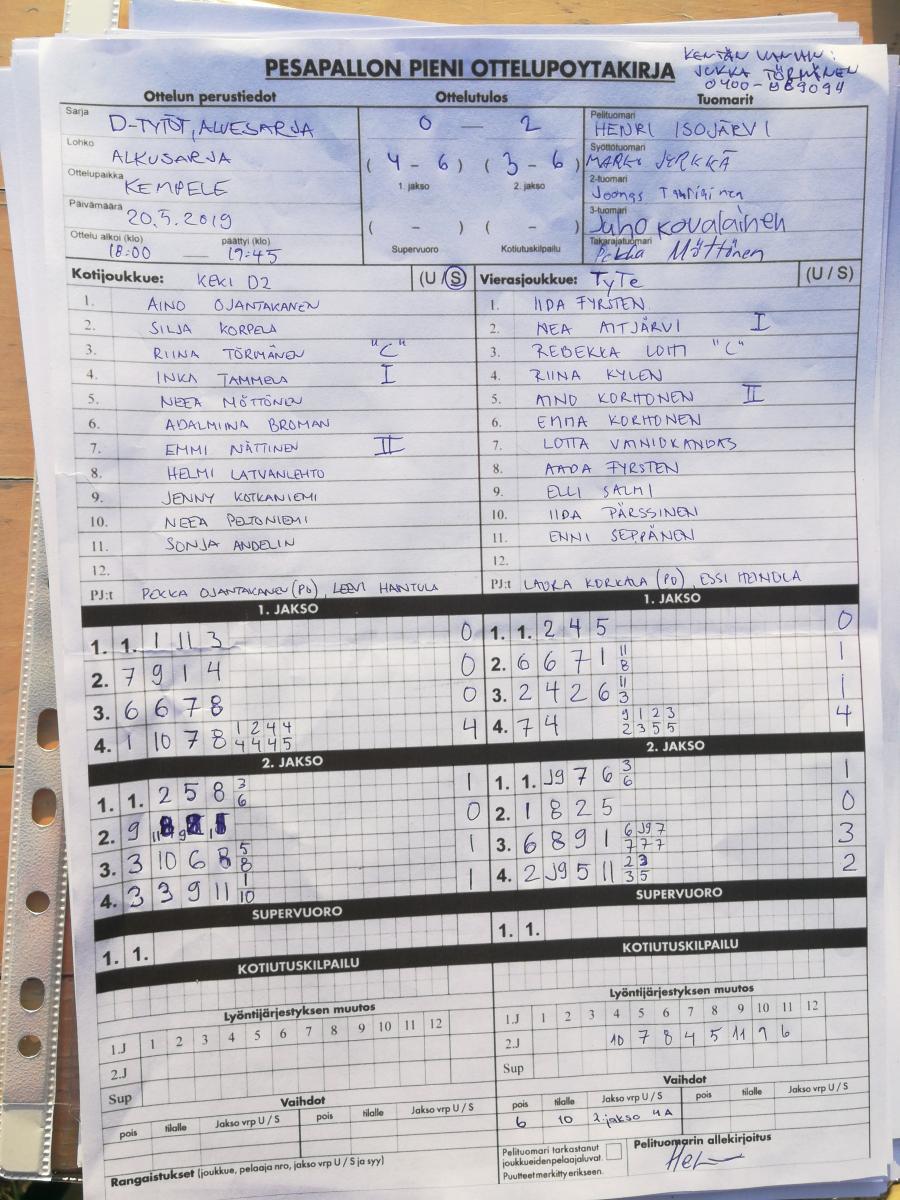 KENTÄN VANHIN:
JUKKA TÖRMÄNEN
PESAPALLON PIENI OTTELUPOYTAKIRJA
Ottelun perustiedot
Ottelutulos
Tuomarit
Sarja D-TYTÖT, ALUESARJA
0 — 2
Pelituomari HENRI ISOJÄRVI
Lohko ALKUSARJA
(4 - 6) (3 - 6)
1. jakso 2. jakso
Syöttötuomari MARKO JERKKÄ
Ottelupaikka KEMPELE
2-tuomari Joonas
Päivämäärä 20.5.2019
( - ) ( - )
Supervuoro Kotiutuskilpailu
3-tuomari Juho Kovalainen
Ottelu alkoi (klo) päättyi (klo)
18:00 — 19:45
Takarajatuomari Pekka Möttönen
Kotijoukkue: KEKI D2 (U / S)
1. AINO OJANTAKANEN
2. SILJA KORPELA
3. RIINA TÖRMÄNEN "C"
4. INKA TAMMELA I
5. NEEA MÖTTÖNEN
6. ADALMIINA BROMAN
7. EMMI NÄTTINEN II
8. HELMI LATVANLEHTO
9. JENNY KOTKANIEMI
10. NEEA PELTONIEMI
11. SONJA ANDELIN
12.
PJ:t PEKKA OJANTAKANEN (PD), LEEVI HANTULA
Vierasjoukkue: TyTe (U / S)
1. IIDA FYRSTEN
2. NEA AITJÄRVI I
3. REBEKKA "C"
4. RIINA KYLEN
5. AINO KORHONEN II
6. EMMA KORHONEN
7. LOTTA VAINIOKANGAS
8. AADA FYRSTEN
9. ELLI SALMI
10. IIDA PÄRSSINEN
11. ENNI SEPPÄNEN
12.
PJ:t LAURA KORKALA (PD), ESSI HEINOLA
1. JAKSO
1. 1. 1 11 3 0
2. 7 9 1 4 0
3. 6 6 7 8 0
4. 1 10 7 8 1 2 4 4 4
4 4 4 5
1. JAKSO
1. 1. 2 4 5 0
2. 6 6 7 1 11 1
8
3. 2 4 2 6 11 1
3
4. 7 4 9 1 2 3 4
2 3 5 5
2. JAKSO
1. 1. 2 5 8 3 1
6
2. 9 0
3. 3 10 6 8 5 1
8
4. 3 3 9 11 1 1
10
2. JAKSO
1. 1. J9 7 6 3 1
6
2. 1 8 2 5 0
3. 6 8 9 1 6 J9 7 3
7 7 7
4. 2 J9 5 11 2 3 2
3 5
SUPERVUORO
1. 1.
SUPERVUORO
1. 1.
KOTIUTUSKILPAILU
KOTIUTUSKILPAILU
Lyöntijärjestyksen muutos
1.J 1 2 3 4 5 6 7 8 9 10 11 12
2.J
Sup
Lyöntijärjestyksen muutos
1.J 1 2 3 4 5 6 7 8 9 10 11 12
2.J 10 7 8 4 5 11 9 6
Sup
Vaihdot
pois tilalle Jakso vrp U / S pois tilalle Jakso vrp U / S
Vaihdot
pois tilalle Jakso vrp U / S pois tilalle Jakso vrp U / S
6 10 2.jakso 4A
Rangaistukset (joukkue, pelaaja nro, jakso vrp U / S ja syy)
Pelituomari tarkastanut
joukkueidenpelaajaluvat.
Puutteet merkitty erikseen.
Pelituomarin allekirjoitus